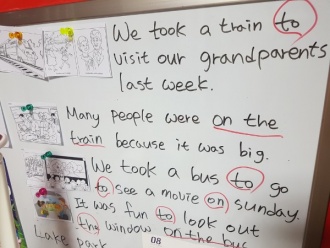 We took a train to
visit our grandparents
last week.
Many people were on the
train because it was big.
We took a bus to go
to see a movie on sunday.
It was fun to look out
the window on the bus
Lake park
08